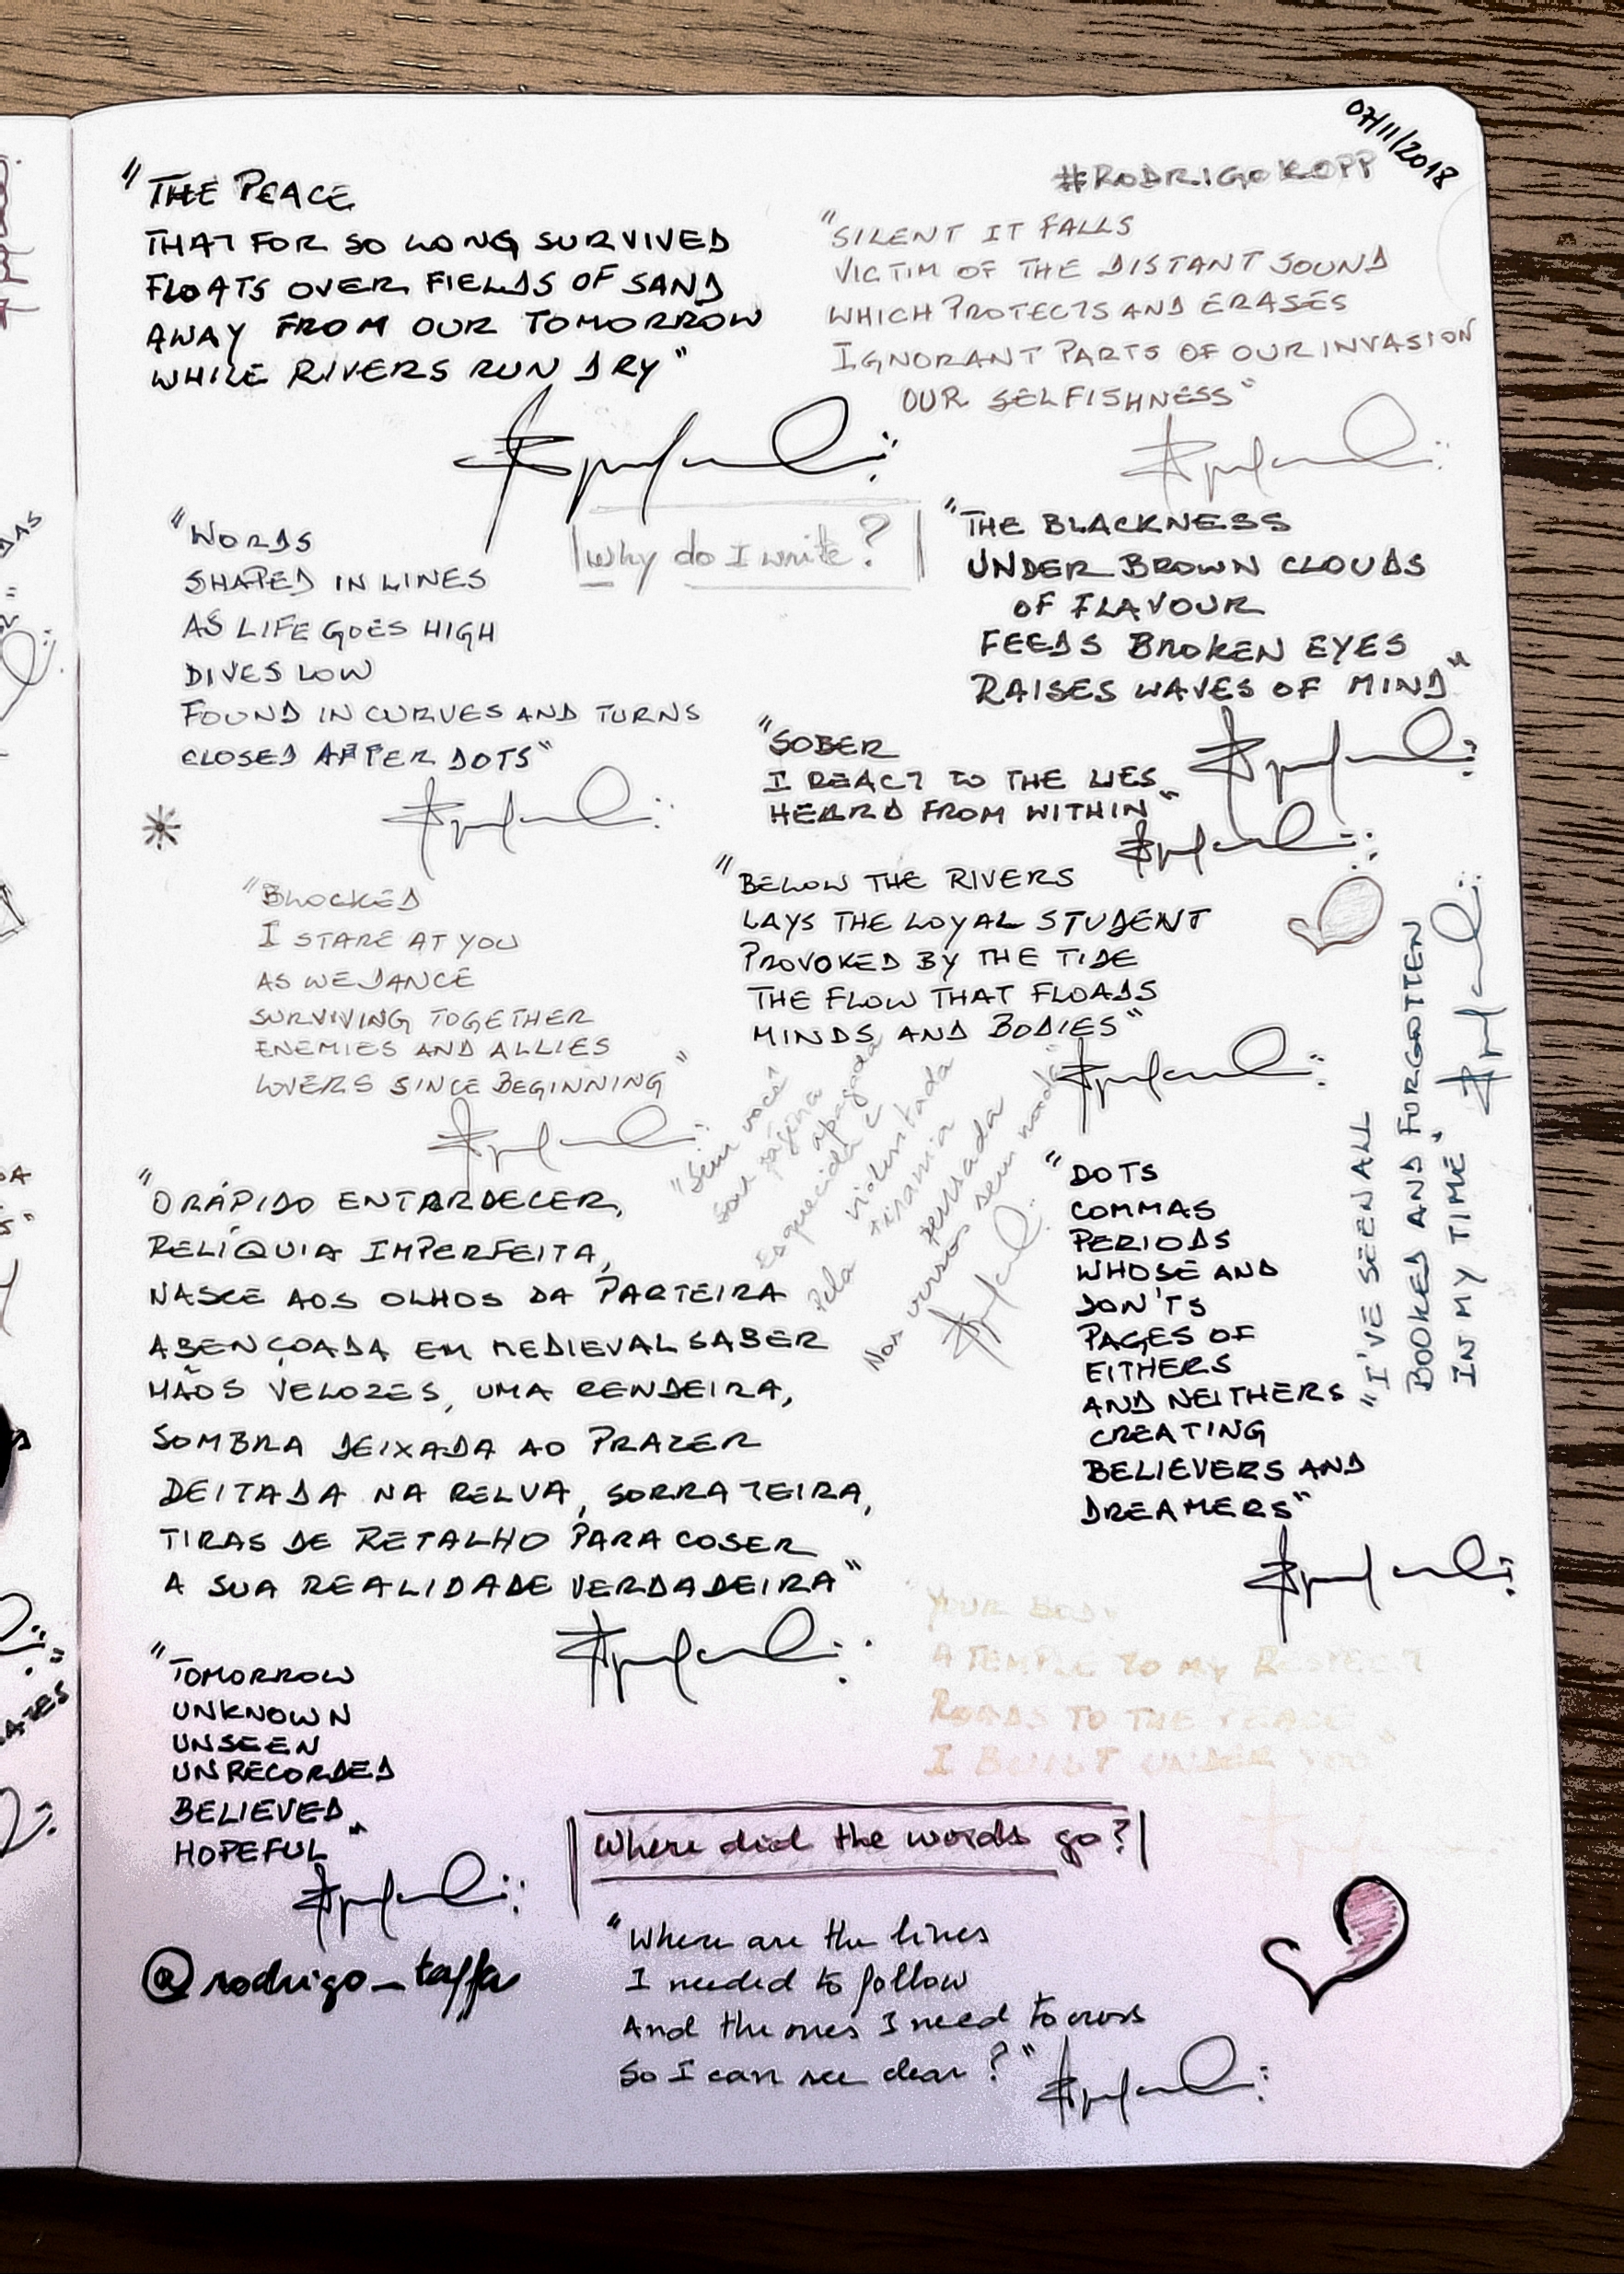 07/11/2018
#RODRIGOKOPP
"THE PEACE
THAT FOR SO LONG SURVIVED
FLOATS OVER FIELDS OF SAND
AWAY FROM OUR TOMORROW
WHILE RIVERS RUN DRY"
"SILENT IT FALLS
VICTIM OF THE DISTANT SOUND
WHICH PROTECTS AND ERASES
IGNORANT PARTS OF OUR INVASION
OUR SELFISHNESS"
Why do I write?
"WORDS
SHAPED IN LINES
AS LIFE GOES HIGH
DIVES LOW
FOUND IN CURVES AND TURNS
CLOSED AFTER DOTS"
"THE BLACKNESS
UNDER BROWN CLOUDS
OF FLAVOUR
FEEDS BROKEN EYES
RAISES WAVES OF MIND"
"SOBER
I REACT TO THE LIES
HEARD FROM WITHIN"
"BLOCKED
I STARE AT YOU
AS WE DANCE
SURVIVING TOGETHER
ENEMIES AND ALLIES
LOVERS SINCE BEGINNING"
"BELOW THE RIVERS
LAYS THE LOYAL STUDENT
PROVOKED BY THE TIDE
THE FLOW THAT FLOADS
MINDS AND BODIES"
"I'VE SEEN ALL
BOOKED AND FORGOTTEN
IN MY TIME"
"Sem você
sou página apagada
Esquecida e violentada
Pela tirania
Nos versos sem nada"
"O RÁPIDO ENTARDECER,
RELÍQUIA IMPERFEITA,
NASCE AOS OLHOS DA PARTEIRA
ABENÇOADA EM MEDIEVAL SABER
MÃOS VELOZES, UMA RENDEIRA,
SOMBRA DEIXADA AO PRAZER
DEITADA NA RELVA, SORRATEIRA,
TIRAS DE RETALHO PARA COSER
A SUA REALIDADE VERDADEIRA"
"DOTS
COMMAS
PERIODS
WHOSE AND
DON'TS
PAGES OF
EITHERS
AND NEITHERS
CREATING
BELIEVERS AND
DREAMERS"
"YOUR BODY
A TEMPLE TO MY RESPECT
ROADS TO THE PEACE
I BUILT UNDER YOU"
"TOMORROW
UNKNOWN
UNSEEN
UNRECORDED
BELIEVED
HOPEFUL"
Where did the words go?
"Where are the lines
I needed to follow
And the ones I need to cross
So I can see clear?"
@rodrigo_taffa